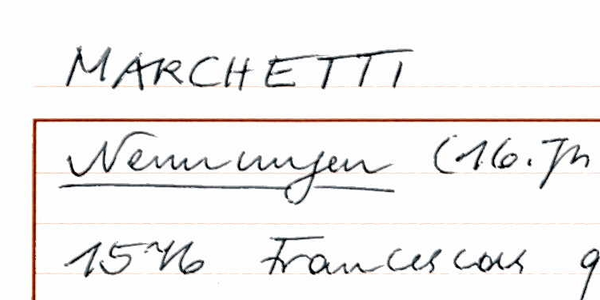 MARCHETTI
Nennungen (16. Jh
1546 Francescas